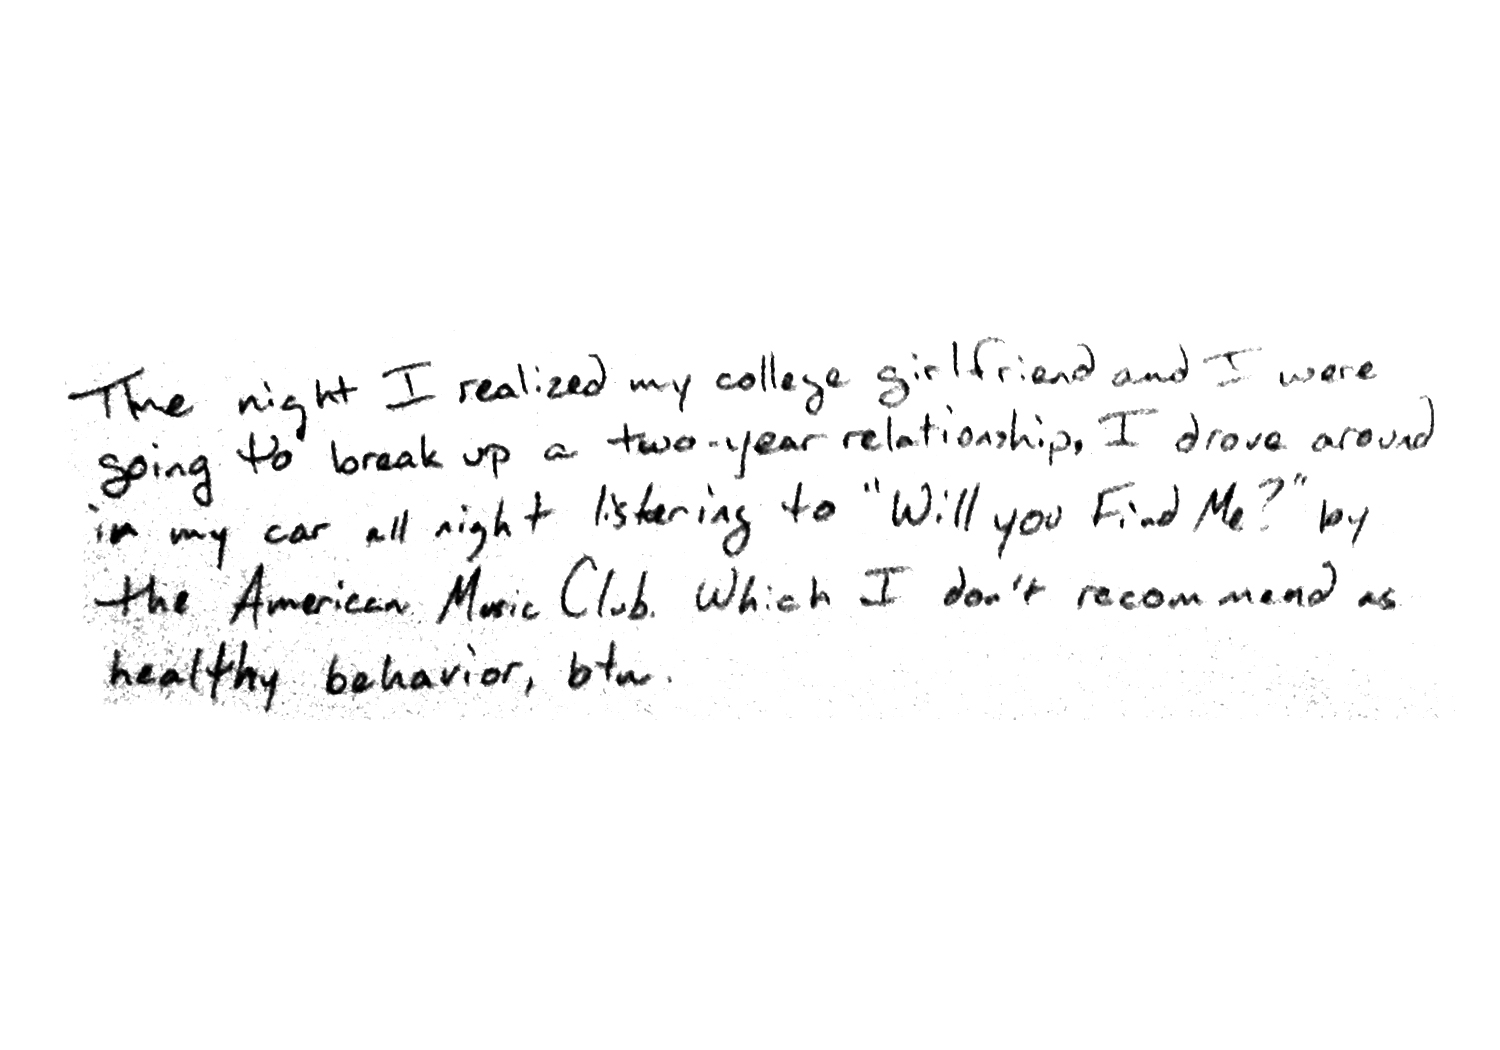 The night I realized my college girlfriend and I were
going to break up a two-year relationship, I drove around
in my car all night listening to "Will you Find Me?" by
the American Music Club. Which I don't recommend as
healthy behavior, btw.